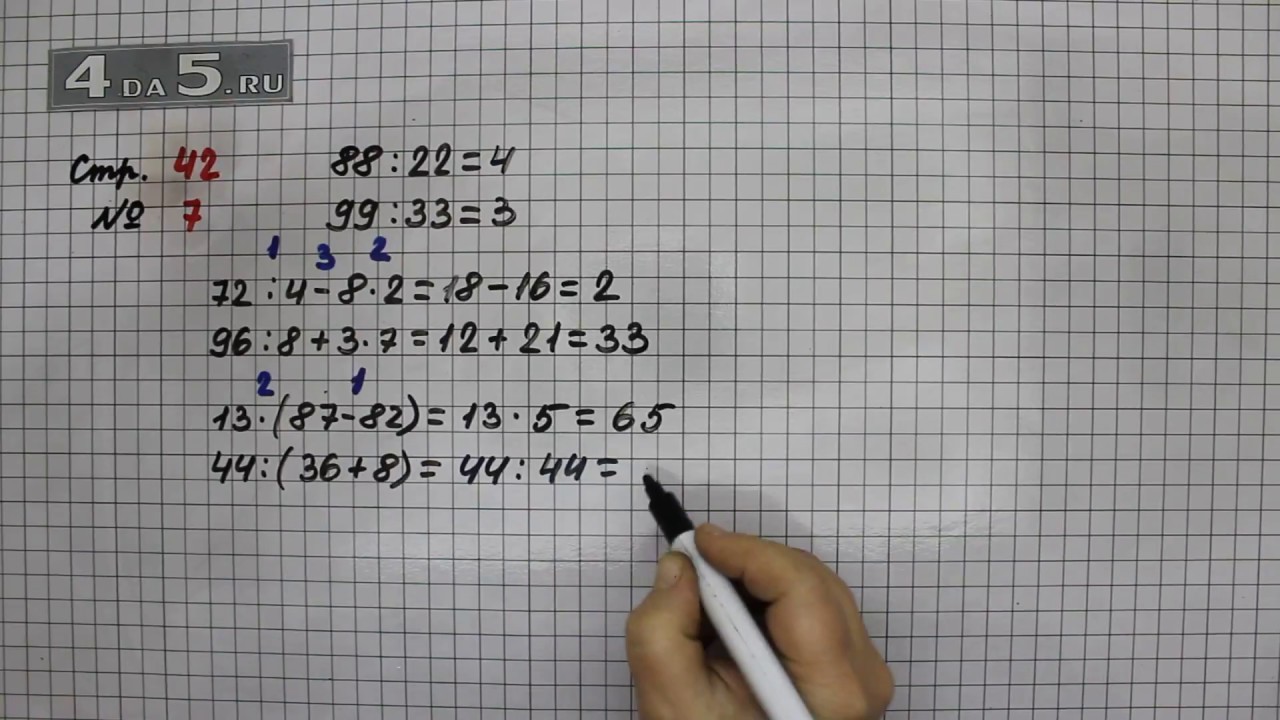 4DA5.RU
Стр. 42
№ 7
88:22=4
99:33=3
1 3 2
72:4-8·2=18-16=2
96:8+3·7=12+21=33
2 1
13·(87-82)=13·5=65
44:(36+8)=44:44=